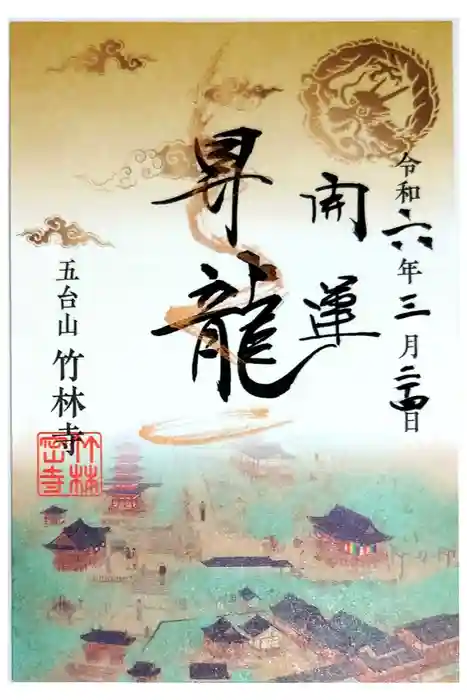 令和六年三月二十四日
開運
昇龍
五台山 竹林寺
竹林
密寺